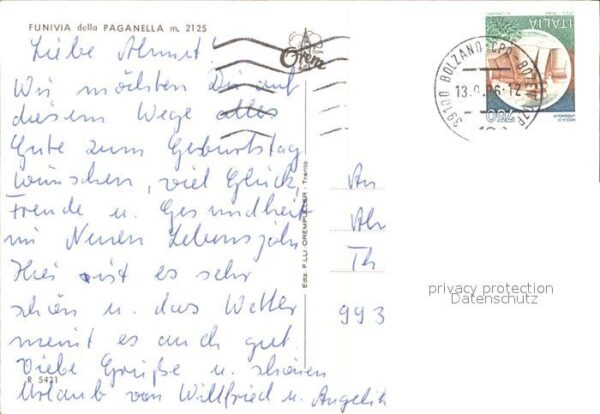 FUNIVIA della PAGANELLA m. 2125
Liebe Almut!
Wir möchten Dir auf
diesem Wege alles
Gute zum Geburtstag
wünschen, viel Glück,
Freude u. Gesundheit
im Neuen Lebensjahr
Hier ist es sehr
schön u. das Wetter
meint es auch gut.
Viele Grüße u. schönen
Urlaub von Willfried u. Angelik
R 5421
Ediz. F.LLI OREMPULLER - Trento
39100 BOLZANO CPO BOZEN
13.9.86-12
ITALIA
750
An
Th
993
privacy protection
Datenschutz